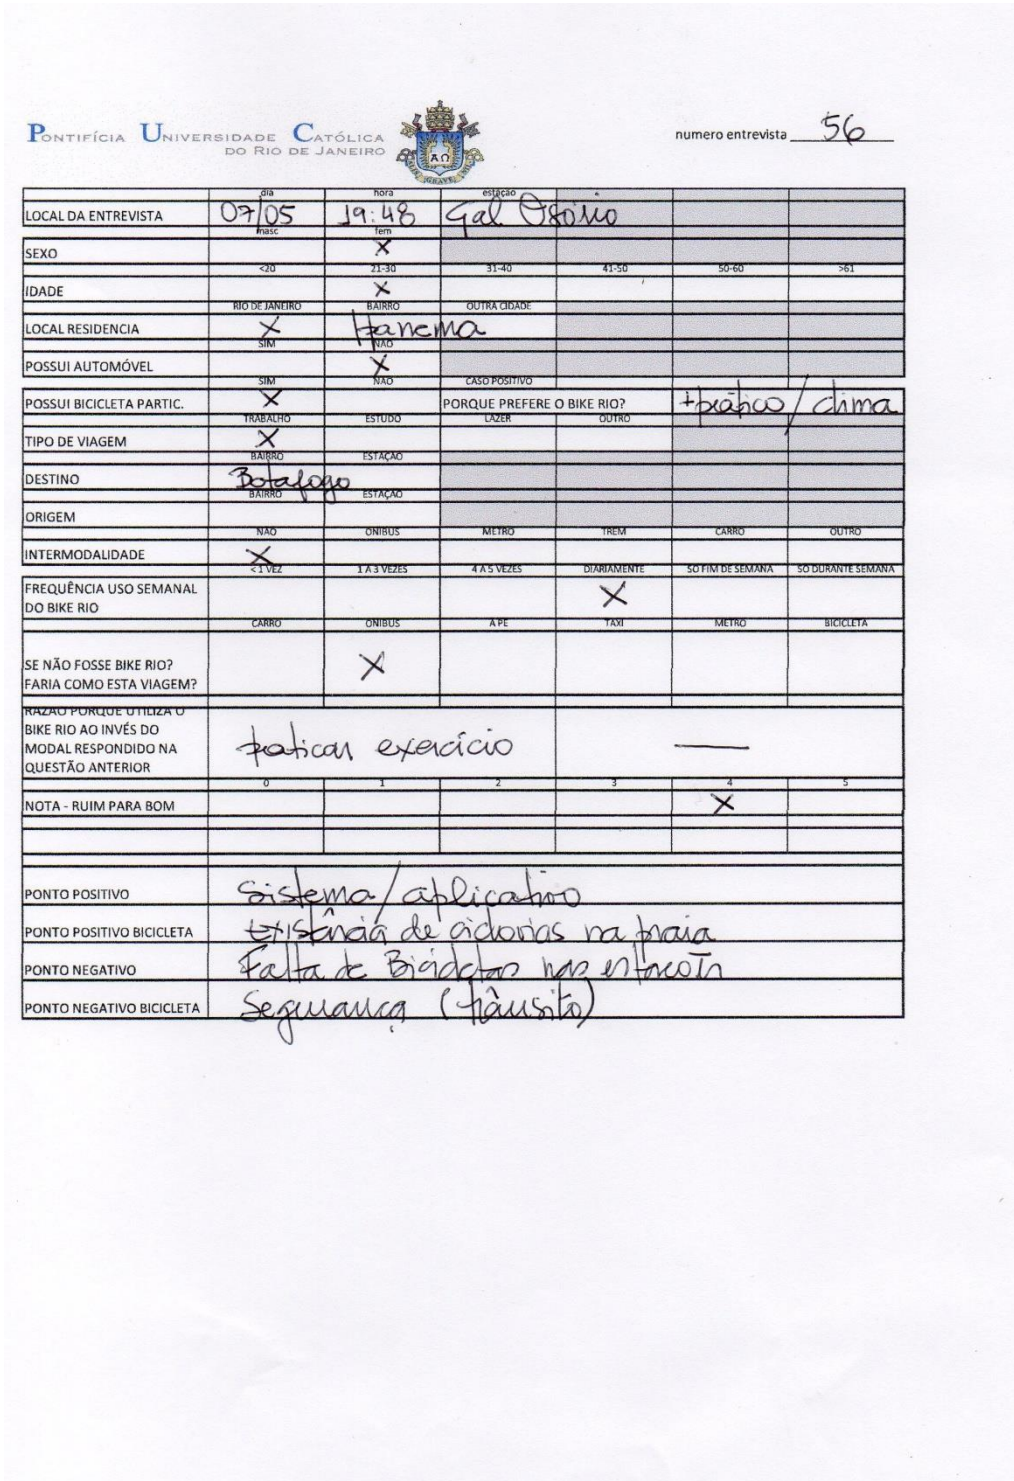 PONTIFÍCIA UNIVERSIDADE CATÓLICA
DO RIO DE JANEIRO
numero entrevista 56
dia hora estação
LOCAL DA ENTREVISTA 07/05 19:48 Gal Osório
masc fem
SEXO X
<20 21-30 31-40 41-50 50-60 >61
IDADE X
RIO DE JANEIRO BAIRRO OUTRA CIDADE
LOCAL RESIDENCIA X Ipanema
SIM NAO
POSSUI AUTOMÓVEL X
SIM NAO CASO POSITIVO
POSSUI BICICLETA PARTIC. X PORQUE PREFERE O BIKE RIO? +prático / clima
TRABALHO ESTUDO LAZER OUTRO
TIPO DE VIAGEM X
BAIRRO ESTAÇAO
DESTINO Botafogo
BAIRRO ESTAÇAO
ORIGEM
NAO ONIBUS METRO TREM CARRO OUTRO
INTERMODALIDADE X
<1 VEZ 1 A 3 VEZES 4 A 5 VEZES DIARIAMENTE SO FIM DE SEMANA SO DURANTE SEMANA
FREQUÊNCIA USO SEMANAL
DO BIKE RIO X
CARRO ONIBUS A PE TAXI METRO BICICLETA
SE NÃO FOSSE BIKE RIO?
FARIA COMO ESTA VIAGEM? X
RAZAO PORQUE UTILIZA O
BIKE RIO AO INVÉS DO
MODAL RESPONDIDO NA
QUESTÃO ANTERIOR praticar exercício —
0 1 2 3 4 5
NOTA - RUIM PARA BOM X
PONTO POSITIVO Sistema / aplicativo
PONTO POSITIVO BICICLETA Existência de ciclovias na praia
PONTO NEGATIVO Falta de Bicicletas nas estações
PONTO NEGATIVO BICICLETA Segurança (trânsito)